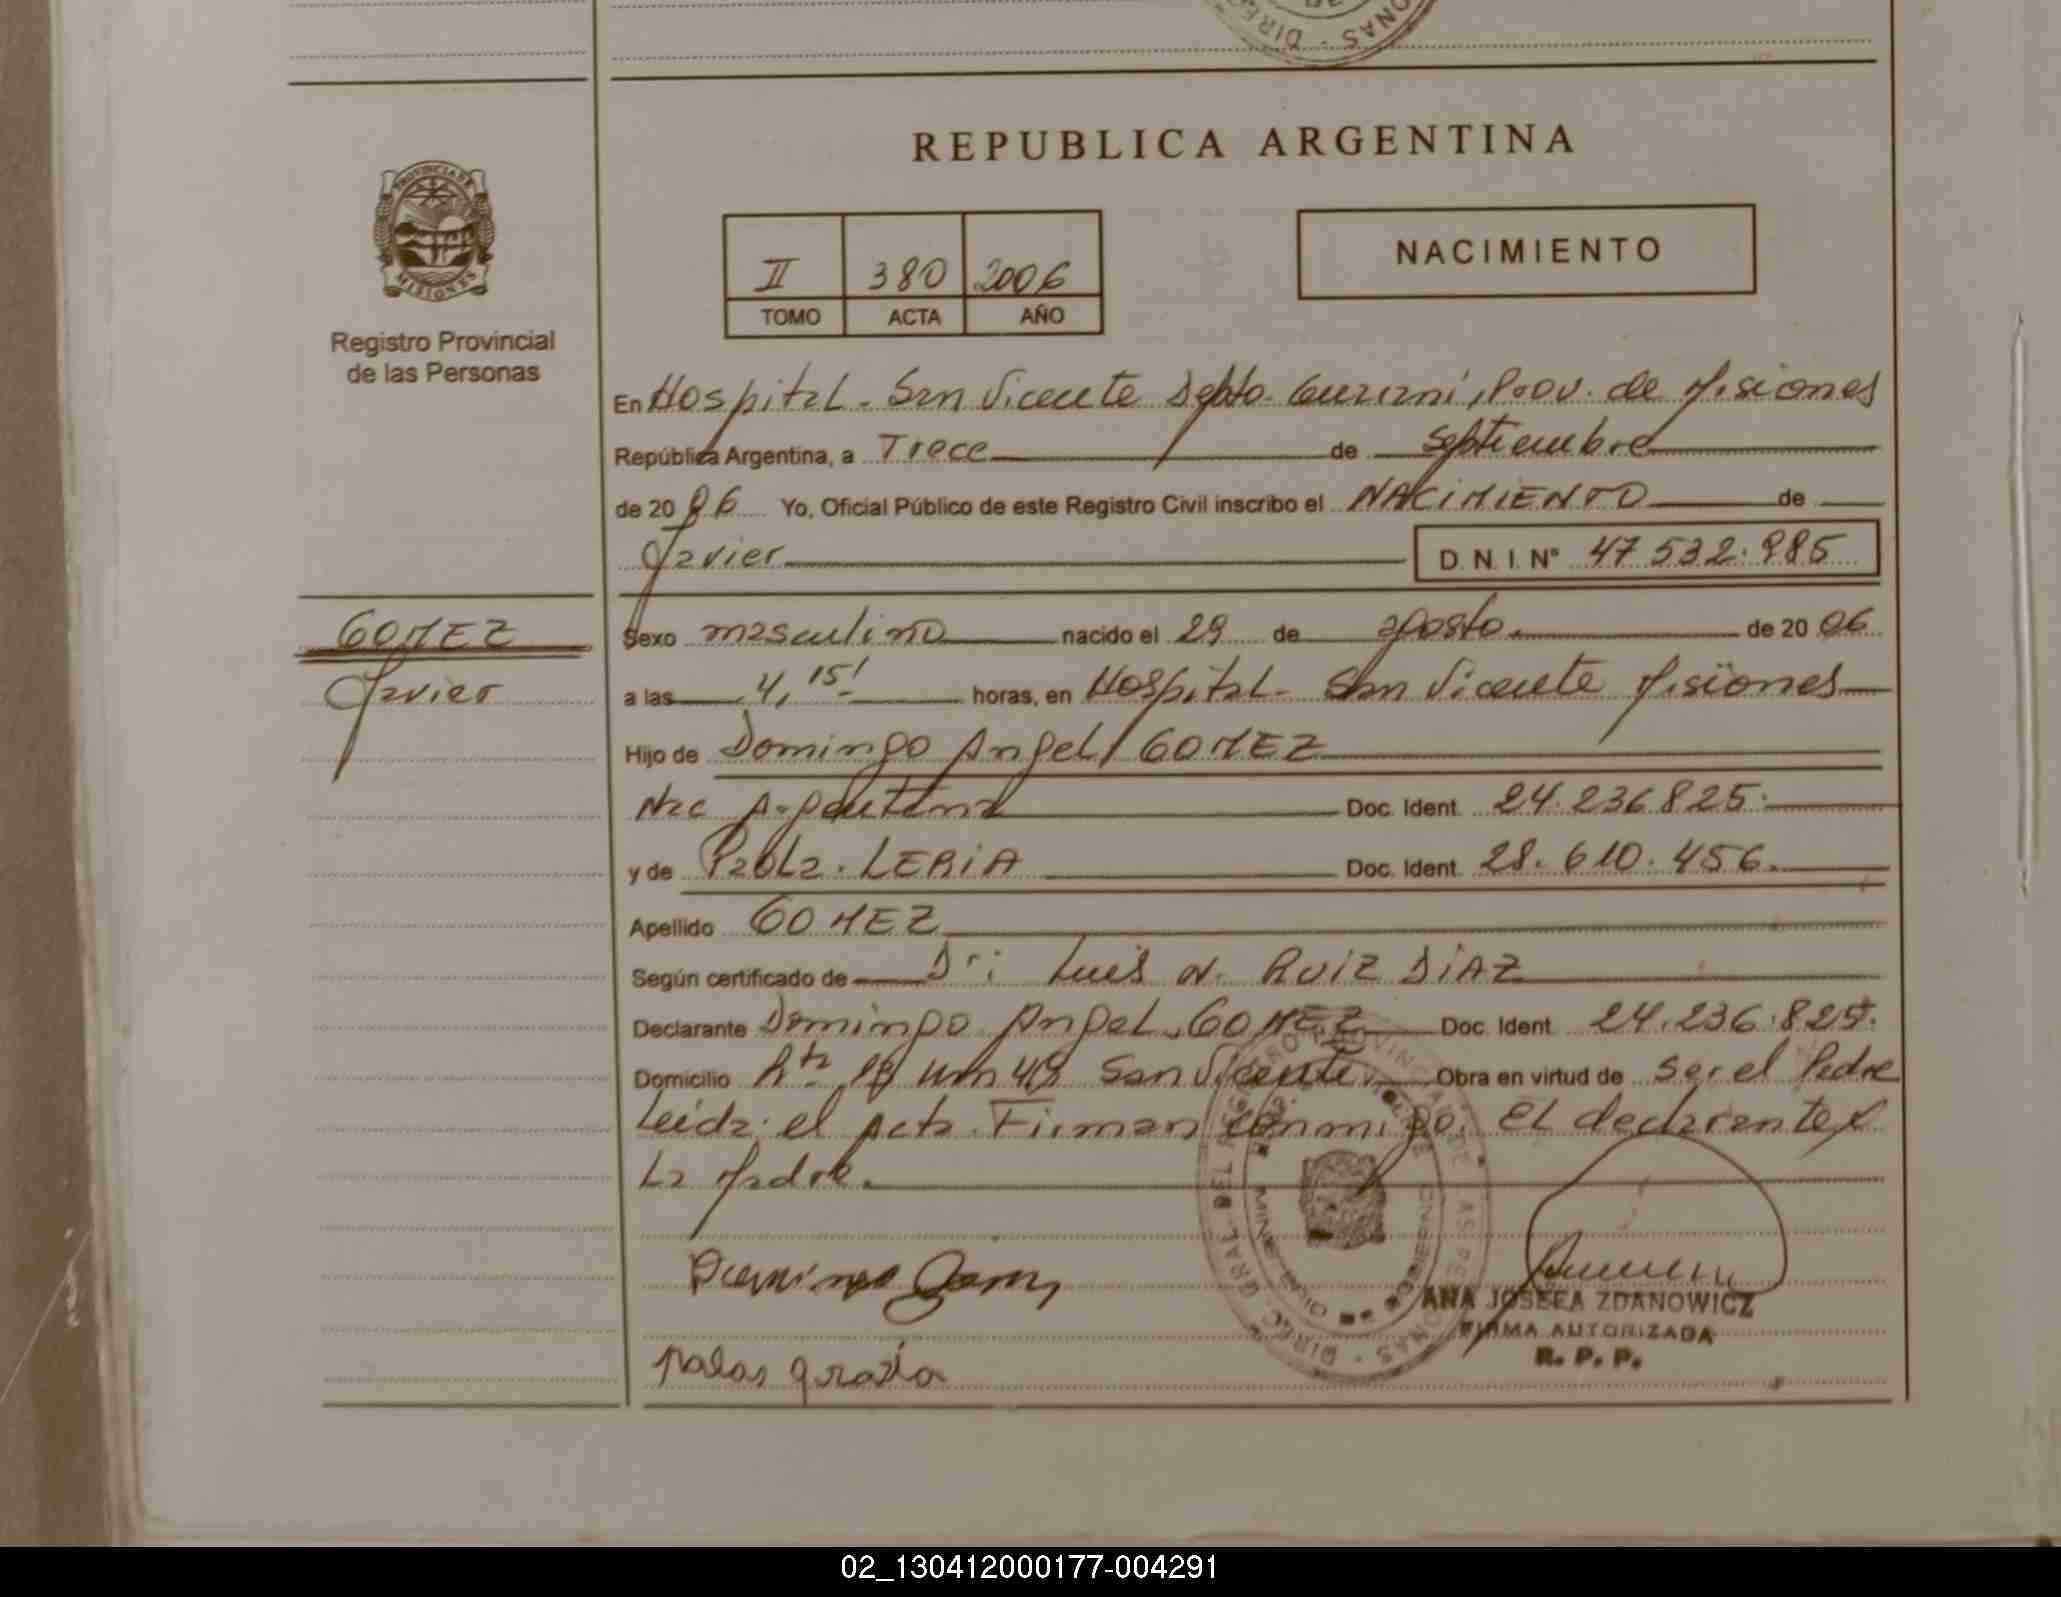 REPUBLICA ARGENTINA
PROVINCIA DE
MISIONES
Registro Provincial
de las Personas
II 380 2006
TOMO ACTA AÑO
NACIMIENTO
En Hospital - San Vicente Depto. Guarani, Prov. de Misiones
República Argentina, a Trece de Septiembre
de 20 06 Yo, Oficial Público de este Registro Civil inscribo el NACIMIENTO de
Javier D. N. I. N° 47.532.985
GOMEZ
Javier
Sexo masculino nacido el 29 de agosto de 20 06
a las 4,15' horas, en Hospital - San Vicente Misiones
Hijo de Domingo Angel GOMEZ
Nac Argentina Doc. Ident. 24.236.825.
y de Paola. LERIA Doc. Ident. 28.610.456.
Apellido GOMEZ
Según certificado de Dr: Luis N. RUIZ DIAZ
Declarante Domingo Angel GOMEZ Doc. Ident. 24.236.825.
Domicilio Rta San Vicente Obra en virtud de ser el Padre
Leida el Acta Firman conmigo. el declarante y
La Madre.
ANA JOSEFA ZDANOWICZ
FIRMA AUTORIZADA
R. P. P.
02_130412000177-004291